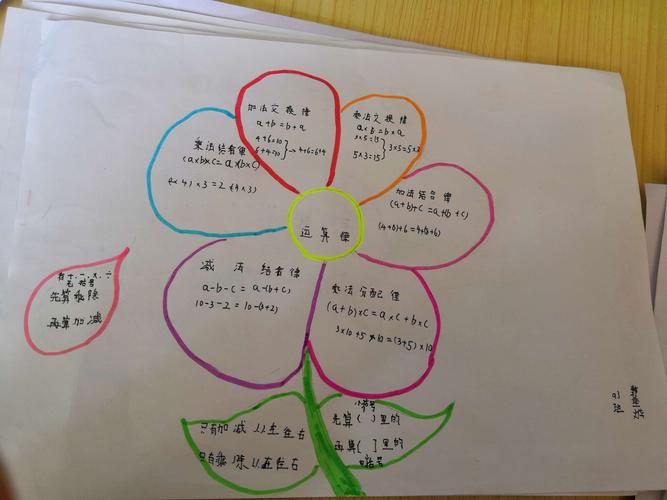 运算律
加法交换律
a+b=b+a
4+6=10
6+4=10
4+6=6+4
乘法交换律
a×b=b×a
3×5=15
5×3=15
3×5=5×3
乘法结合律
(a×b)×C=a×(b×C)
加法结合律
(a+b)+C=a+(b+C)
减法结合律
a-b-C=a-(b+C)
10-3-2=10-(3+2)
乘法分配律
(a+b)×C=a×C+b×C
3×10+5×10=(3+5)×10
在+、-、×、÷
无括号
先算乘除
再算加减
只有加减从左往右
只有乘除从左往右
小括号
先算( )里的
再算[ ]里的